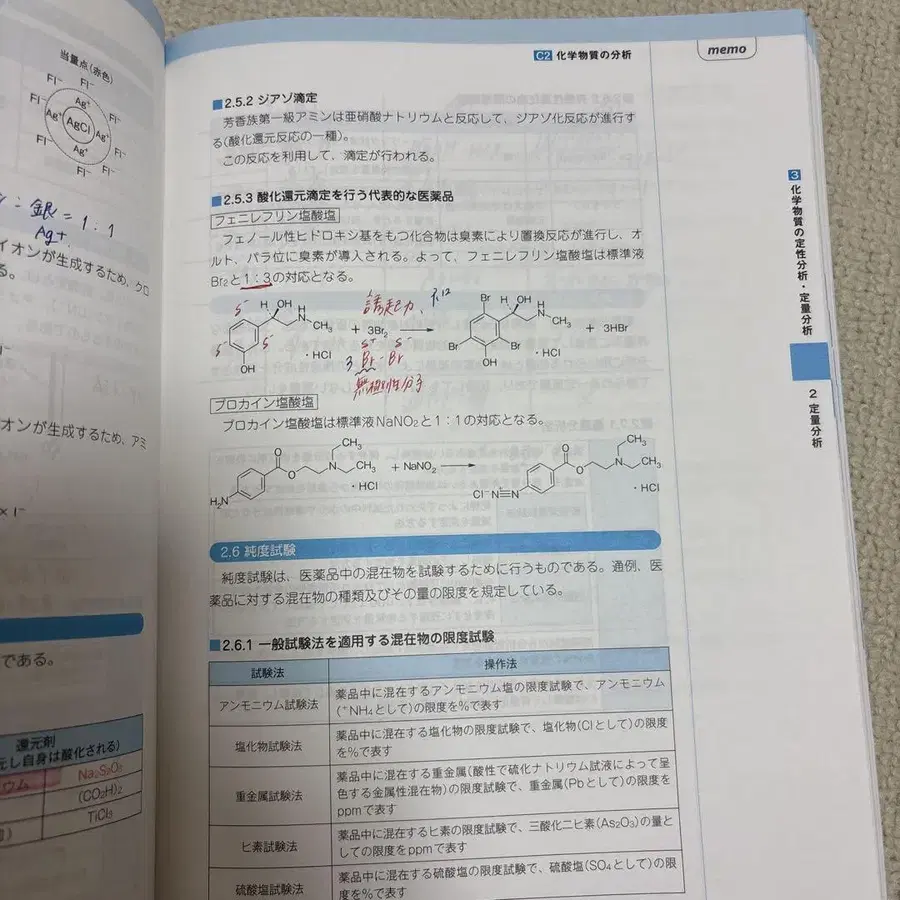 当量点(赤色)
Fl⁻ Fl⁻
Fl⁻ Ag⁺ Fl⁻
Ag⁺ AgCl Ag⁺
Fl⁻ Ag⁺ Fl⁻
Fl⁻ Fl⁻
銀 = 1 : 1
Ag+
イオンが生成するため、クロ
る。
オンが生成するため、アミ
× 1⁻
である。
還元剤
元し自身は酸化される)
ウム Na₂S₂O₃
(CO₂H)₂
TiCl₃
C2 化学物質の分析
memo
■2.5.2 ジアゾ滴定
芳香族第一級アミンは亜硝酸ナトリウムと反応して、ジアゾ化反応が進行す
る(酸化還元反応の一種)。
この反応を利用して、滴定が行われる。
■2.5.3 酸化還元滴定を行う代表的な医薬品
フェニレフリン塩酸塩
フェノール性ヒドロキシ基をもつ化合物は臭素により置換反応が進行し、オ
ルト、パラ位に臭素が導入される。よって、フェニレフリン塩酸塩は標準液
Br₂と1:3の対応となる。
誘起力、
H OH H N CH₃ ・HCl OH + 3Br₂ → Br H OH H N CH₃ Br Br OH ・HCl + 3HBr
δ⁻ δ⁻ δ⁻
δ+ δ-
3 Br-Br
無極性分子
プロカイン塩酸塩
プロカイン塩酸塩は標準液NaNO₂と1:1の対応となる。
H₂N O O N CH₃ CH₃ ・HCl + NaNO₂ → Cl⁻ N≡N⁺ O O N CH₃ CH₃ ・HCl
2.6 純度試験
純度試験は、医薬品中の混在物を試験するために行うものである。通例、医
薬品に対する混在物の種類及びその量の限度を規定している。
■2.6.1 一般試験法を適用する混在物の限度試験
試験法 操作法
アンモニウム試験法 薬品中に混在するアンモニウム塩の限度試験で、アンモニウム
(⁺NH₄として)の限度を%で表す
塩化物試験法 薬品中に混在する塩化物の限度試験で、塩化物(Clとして)の限度
を%で表す
重金属試験法 薬品中に混在する重金属(酸性で硫化ナトリウム試液によって呈
色する金属性混在物)の限度試験で、重金属(Pbとして)の限度を
ppmで表す
ヒ素試験法 薬品中に混在するヒ素の限度試験で、三酸化二ヒ素(As₂O₃)の量と
しての限度をppmで表す
硫酸塩試験法 薬品中に混在する硫酸塩の限度試験で、硫酸塩(SO₄として)の限
度を%で表す
3 化学物質の定性分析・定量分析
2 定量分析